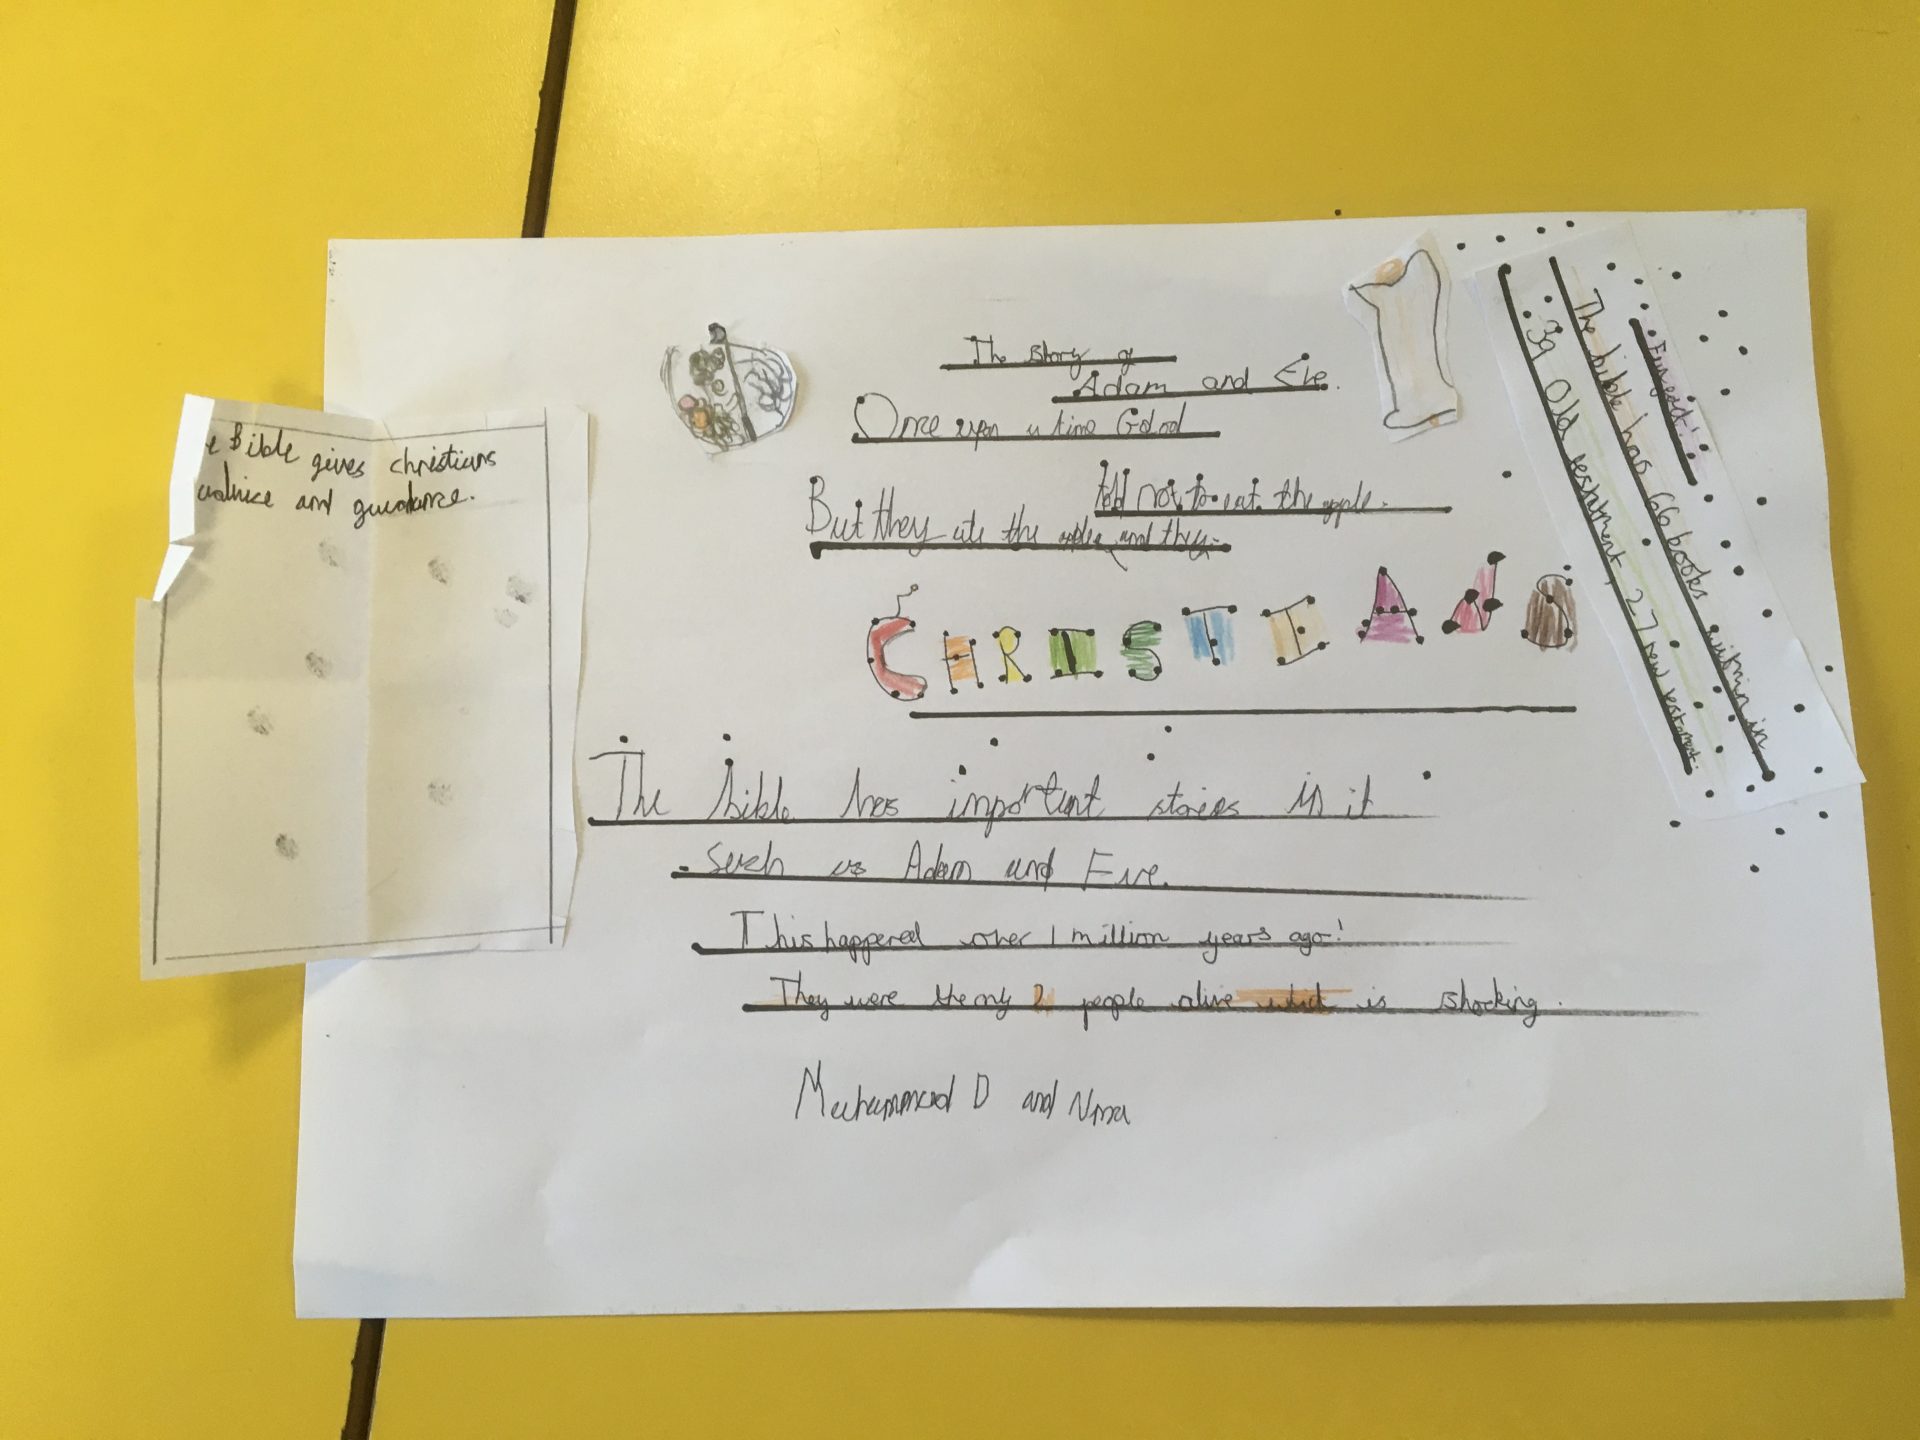 The story of
Adam and Eve.
Once upon a time
told not to eat the apple.
But they ate the apple and they
CHRISTIANS
The bible has important stories in it
such as Adam and Eve.
This happened over 1 million years ago!
They were the only 2 people alive which is shocking.
Muhammad D and
e Bible gives christians
and guidance.
Funfact!
The bible has 66 books within in
39 Old testment, 27 new testament.